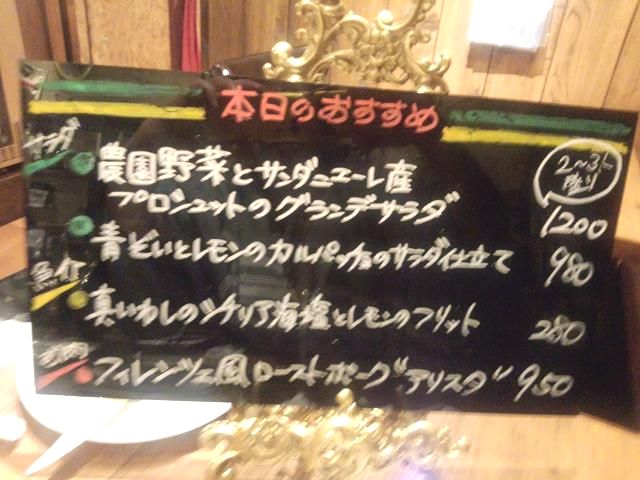 本日のおすすめ
サラダ
農園野菜とサンダニエーレ産
プロシュットのグランデサラダ
2〜3人盛り
1200
青ぞいとレモンのカルパッチョのサラダ仕立て
980
魚介
真いわしのシチリア海塩とレモンのフリット
280
お肉
フィレンツェ風ローストポーク"アリスタ" 950